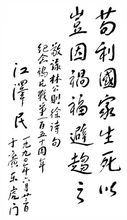 苟利國家生死以
豈因禍福避趨之
敬 林公則徐詩句
紀念鴉片戰爭一百五十周年
江澤民
一九九〇年六月
于廣東虎門